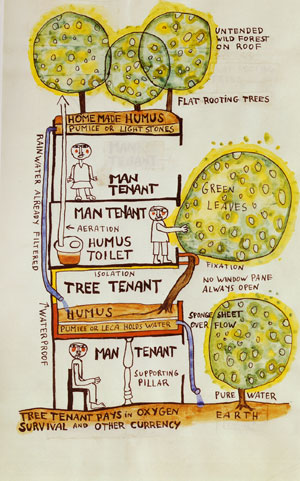 UNTENDED
WILD FOREST
ON ROOF
FLAT ROOTING TREES
HOME MADE HUMUS
PUMICE OR LIGHT STONES
RAIN WATER ALREADY FILTERED
MAN
TENANT
MAN TENANT
AERATION
HUMUS
TOILET
GREEN
LEAVES
ISOLATION
TREE TENANT
FIXATION
NO WINDOW PANE
ALWAYS OPEN
HUMUS
PUMICE OR LECA HOLDS WATER
WATERPROOF
SPONGE SHEET
OVER FLOW
MAN TENANT
SUPPORTING
PILLAR
PURE WATER
EARTH
TREE TENANT PAYS IN OXYGEN
SURVIVAL AND OTHER CURRENCY